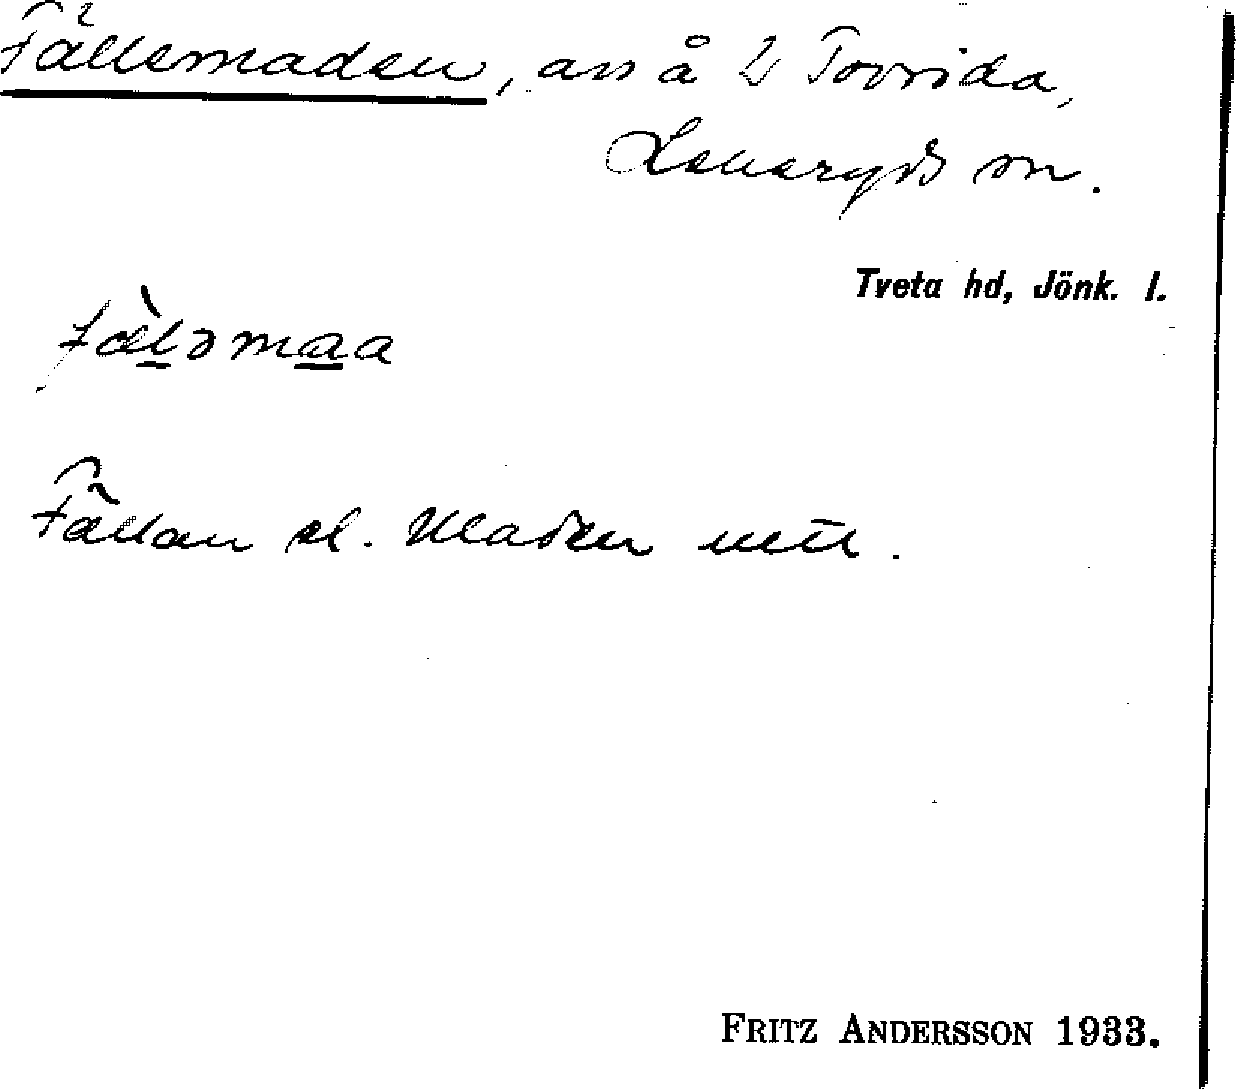 Fällemaden, äng å 2 Torrida,
Lekeryds sn.
Tveta hd, Jönk. l.
fàləmaa
Fällan el. Maden nett.
FRITZ ANDERSSON 1933.